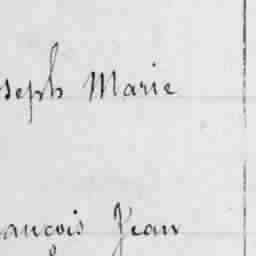 oseph Marie
rançois Jean